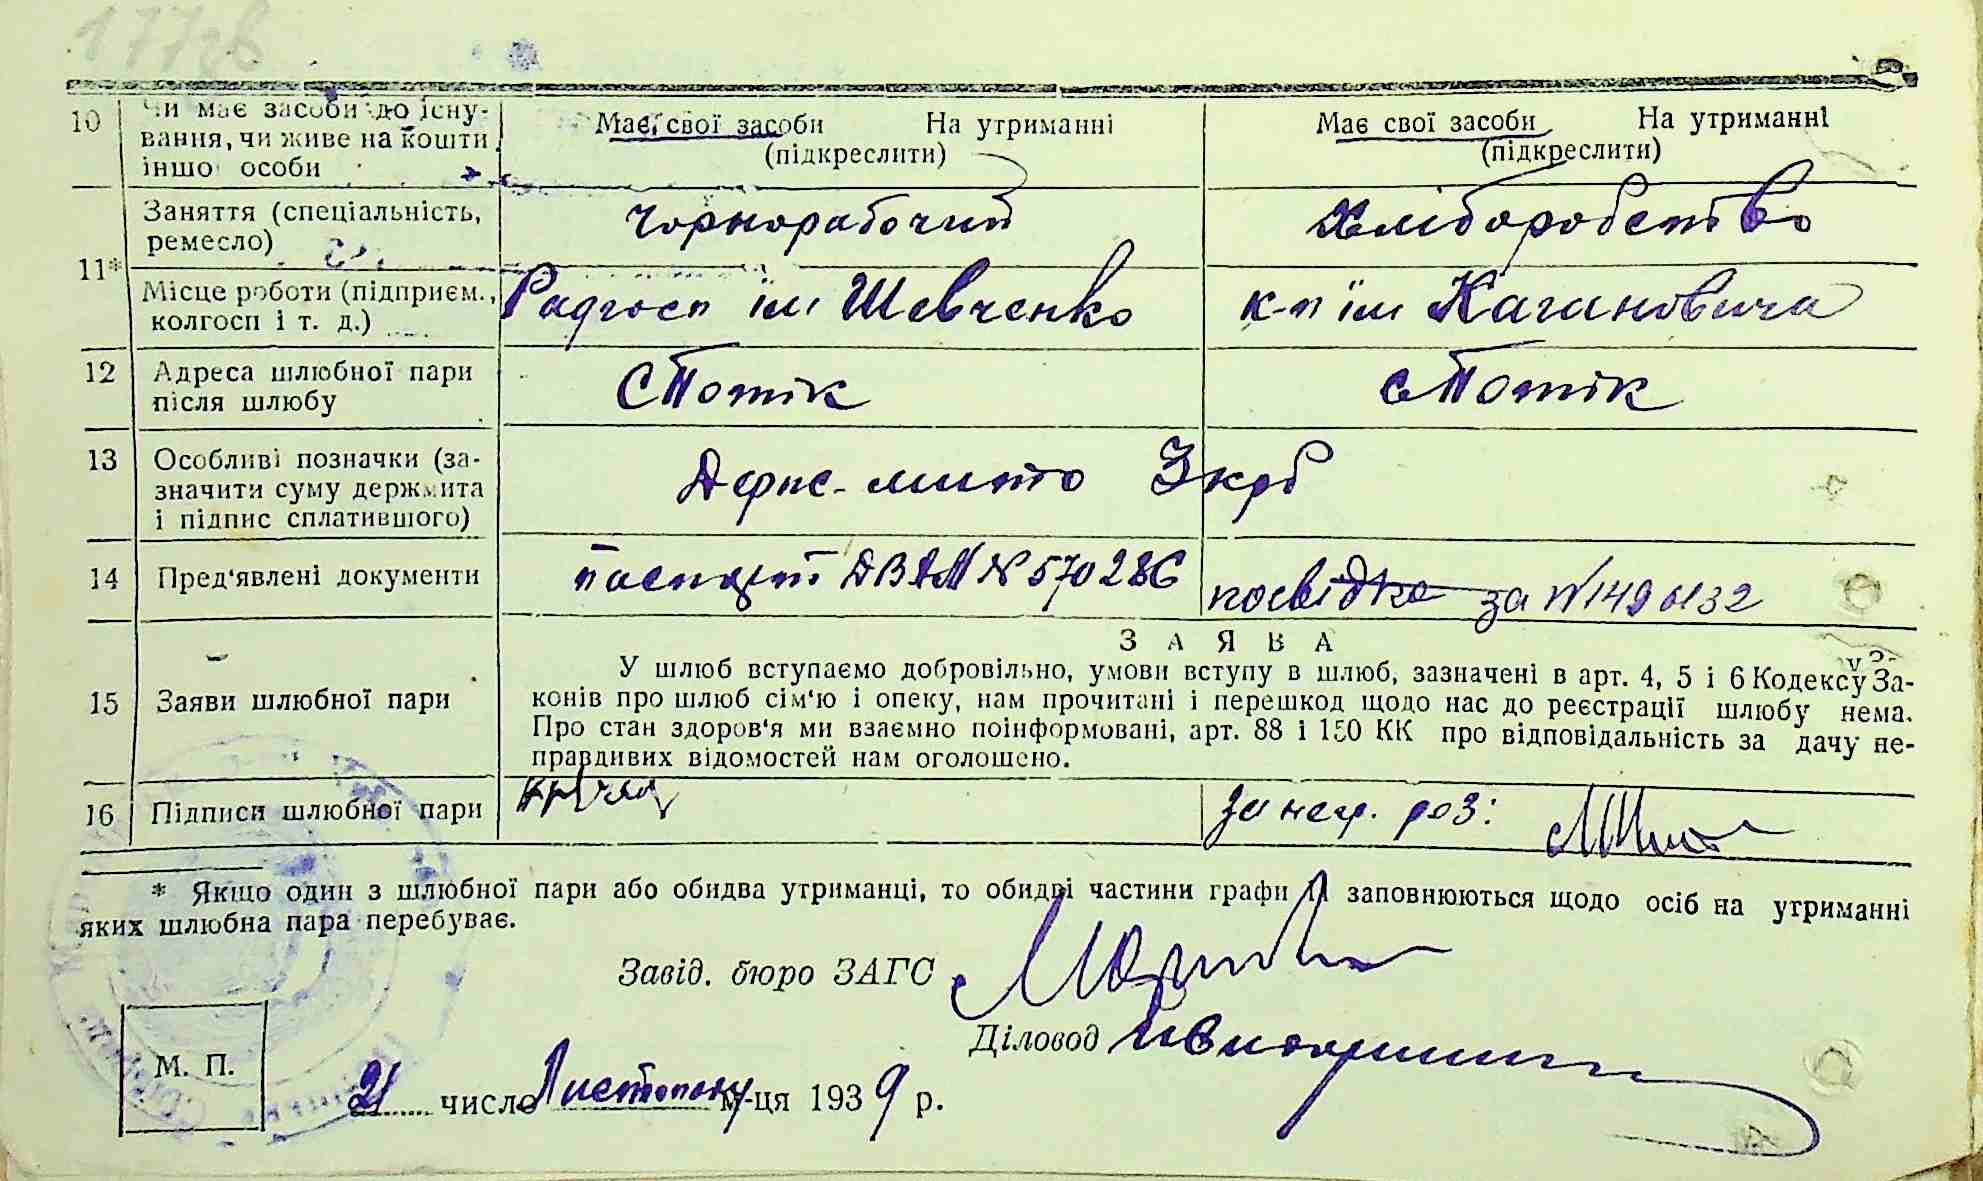 177зв
10 Чи має засоби до існу- Має свої засоби На утриманні Має свої засоби На утриманні
вання, чи живе на кошти (підкреслити) (підкреслити)
іншої особи
Заняття (спеціальність, Чорнорабочий Хліборобство
ремесло)
11*
Місце роботи (підприєм., Радгосп ім Шевченко к-п їм Кагановича
колгосп і т. д.)
12 Адреса шлюбної пари с Потік с Потік
після шлюбу
13 Особливі позначки (за-
значити суму держмита Держ-мито 3 крб
і підпис сплатившого)
14 Пред'явлені документи паспорт №570286 посвідка за №149
З А Я В А
У шлюб вступаємо добровільно, умови вступу в шлюб, зазначені в арт. 4, 5 і 6 Кодексу За-
15 Заяви шлюбної пари конів про шлюб сім'ю і опеку, нам прочитані і перешкод щодо нас до реєстрації шлюбу нема.
Про стан здоров'я ми взаємно поінформовані, арт. 88 і 150 КК про відповідальність за дачу не-
правдивих відомостей нам оголошено.
16 Підписи шлюбної пари за негр. роз:
* Якщо один з шлюбної пари або обидва утриманці, то обидві частини графи 11 заповнюються щодо осіб на утриманні
яких шлюбна пара перебуває.
Завід. бюро ЗАГС
Діловод
М. П.
21 число Листопаду м-ця 1939 р.